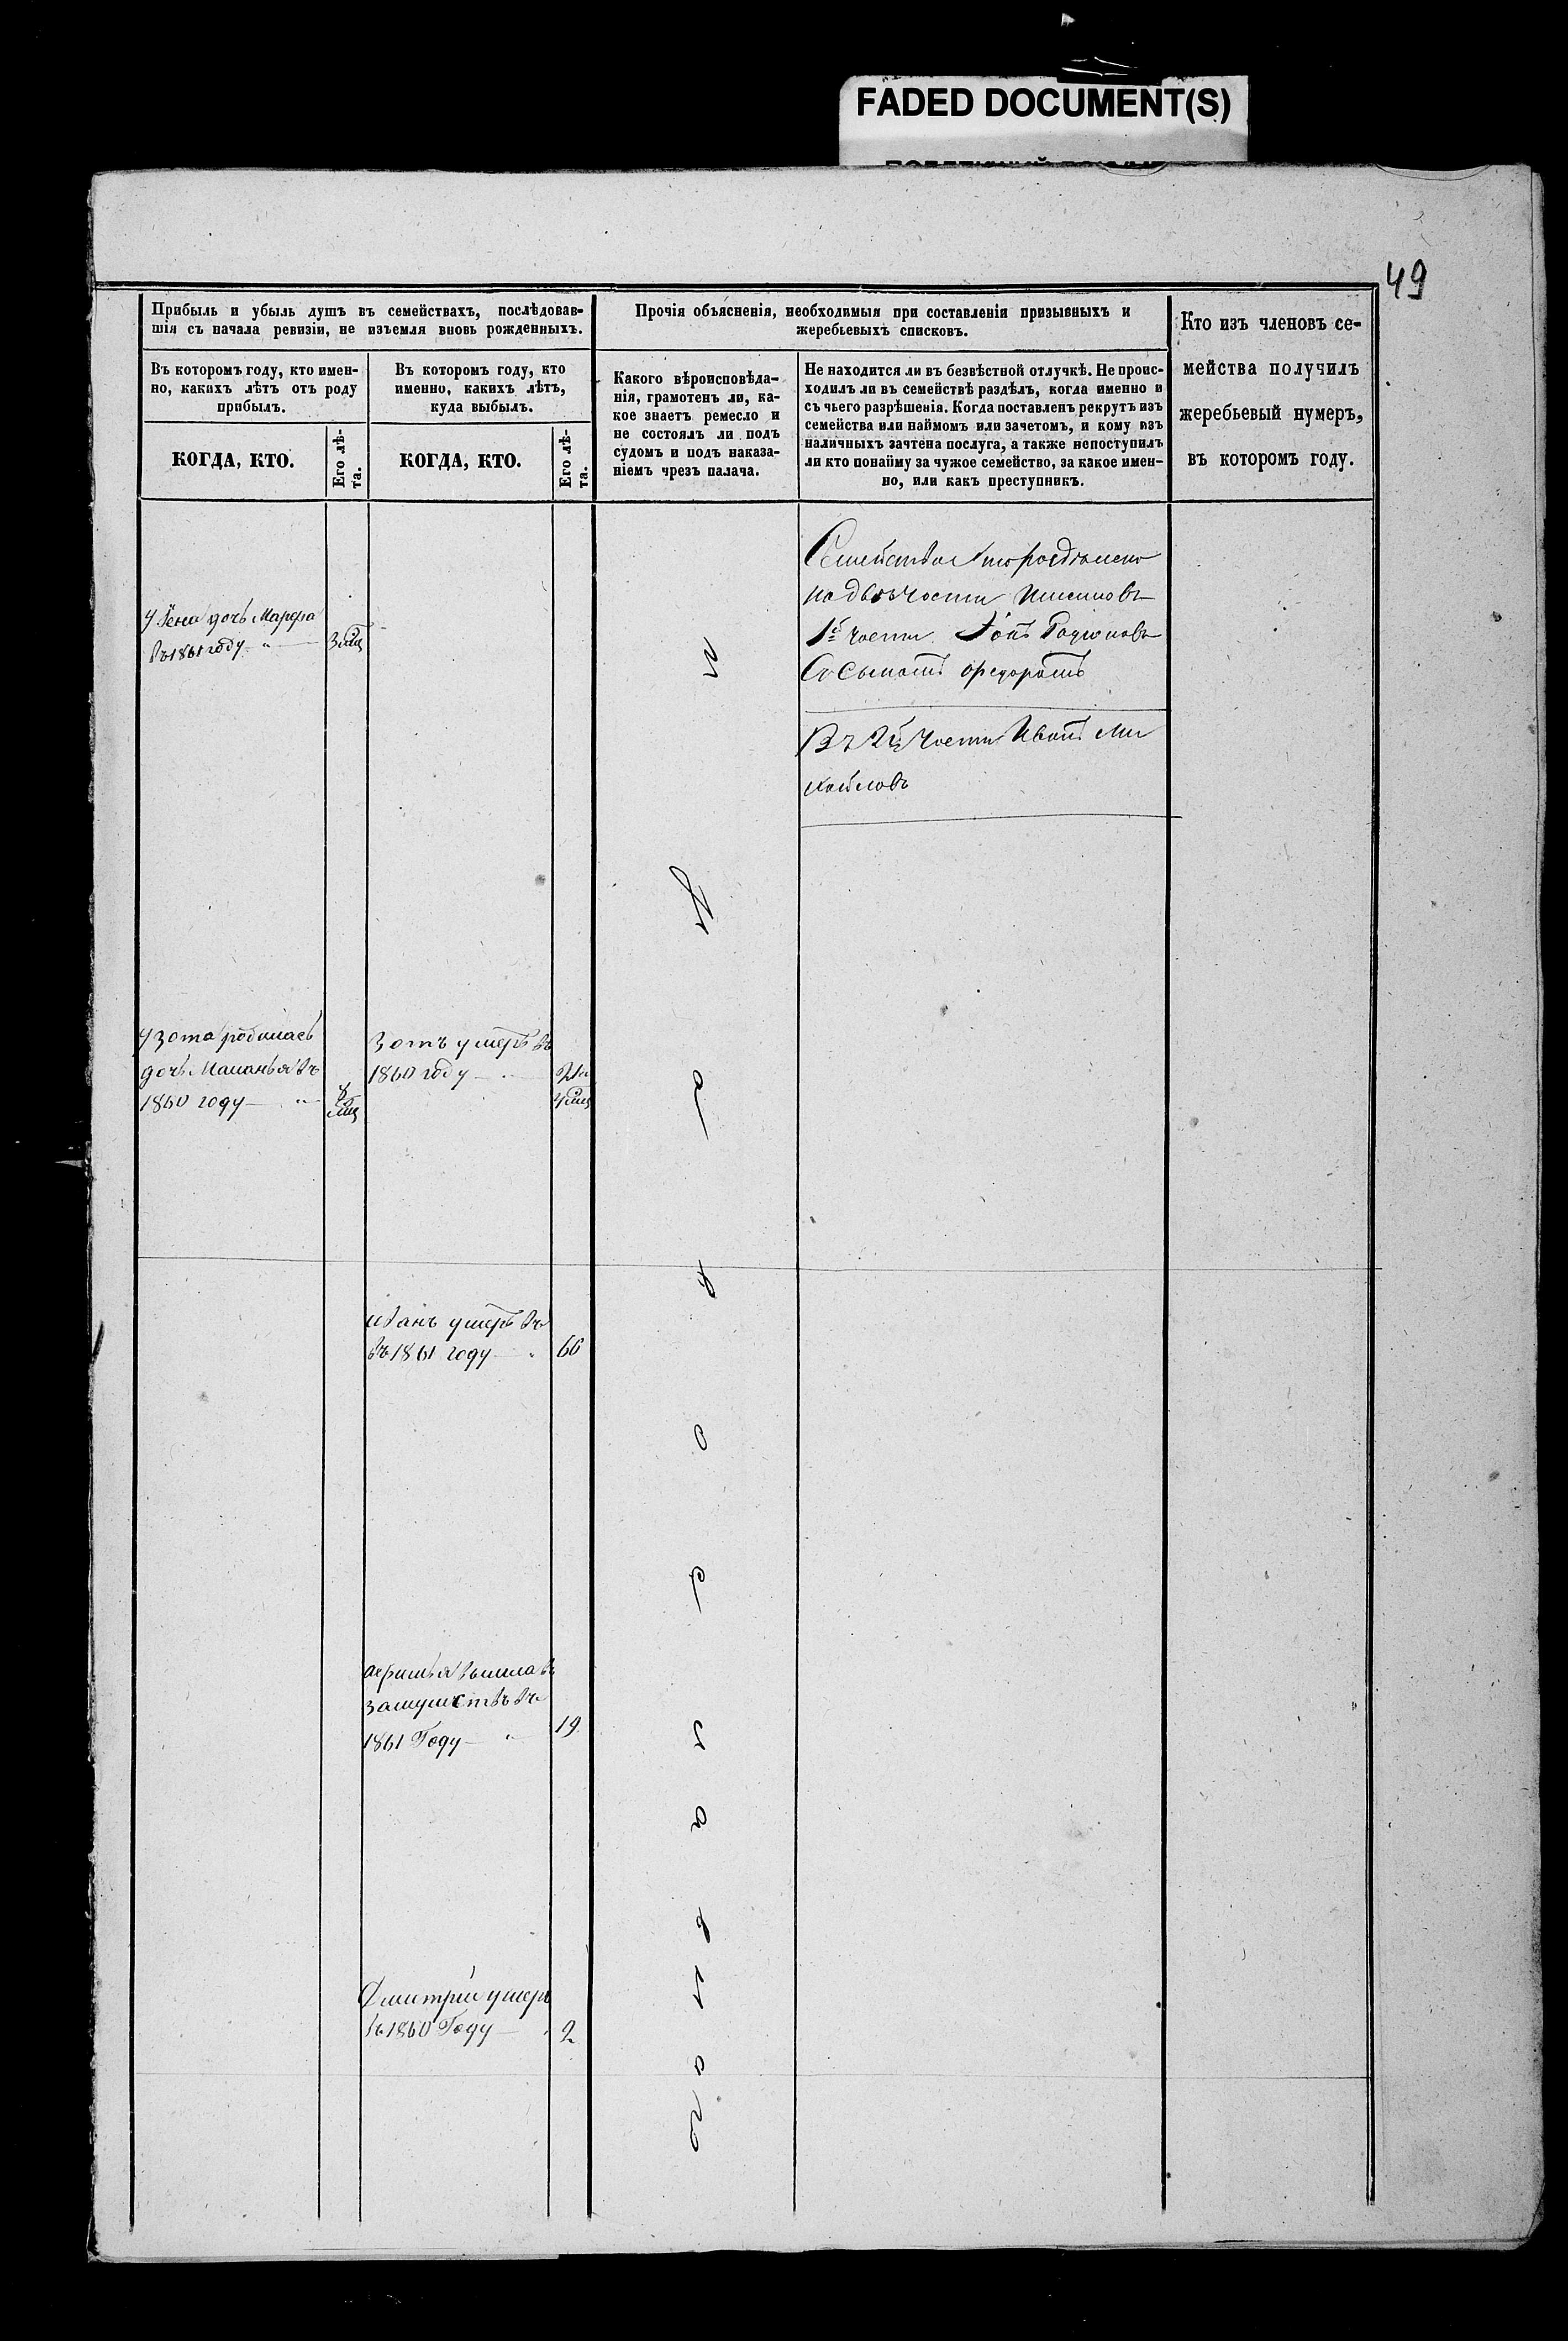 FADED DOCUMENT(S)
49
Прибыль и убыль душъ въ семействахъ, послѣдовав-
шія съ начала ревизіи, не изъемля вновь рожденныхъ.
Въ которомъ году, кто имен-
но, какихъ лѣтъ отъ роду
прибылъ.
КОГДА, КТО.
Его лѣ-
та.
Въ которомъ году, кто
именно, какихъ лѣтъ,
куда выбылъ.
КОГДА, КТО.
Его лѣ-
та.
Прочія объясненія, необходимыя при составленіи призывныхъ и
жеребьевыхъ списковъ.
Какого вѣроисповѣда-
нія, грамотенъ ли, ка-
кое знаетъ ремесло и
не состоялъ ли подъ
судомъ и подъ наказа-
ніемъ чрезъ палача.
Не находится ли въ безвѣстной отлучкѣ. Не проис-
ходилъ ли въ семействѣ раздѣлъ, когда именно и
съ чьего разрѣшенія. Когда поставленъ рекрутъ изъ
семейства или наймомъ или зачетомъ, и кому изъ
наличныхъ зачтена послуга, а также непоступилъ
ли кто понайму за чужое семейство, за какое имен-
но, или какъ преступникъ.
Кто изъ членовъ се-
мейства получилъ
жеребьевый нумеръ,
въ которомъ году.
дочь Марфа
въ 1861 году 3 мц
У Зота родилась
дочь Маланья въ
1860 году
Зотъ умеръ въ
1860 году
4 мц
Иванъ умеръ въ
въ 1861 году 66
вышла въ
замужство въ
1861 Году 19
Дмитрій умеръ
въ 1860 Году 2
П р а в о с л а в н а го
Семейство
на двѣ части
1й части Родионовъ
Со сыномъ Федоромъ
Въ 2й части Иванъ Ми
хайловъ